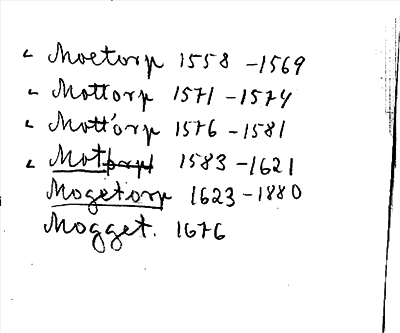 « Moetorp 1558 - 1569
« Mottorp 1571 - 1574
« Mottorp 1576 - 1581
« Motorp 1583 - 1621
Mogetorp 1623 - 1880
Mogget. 1676